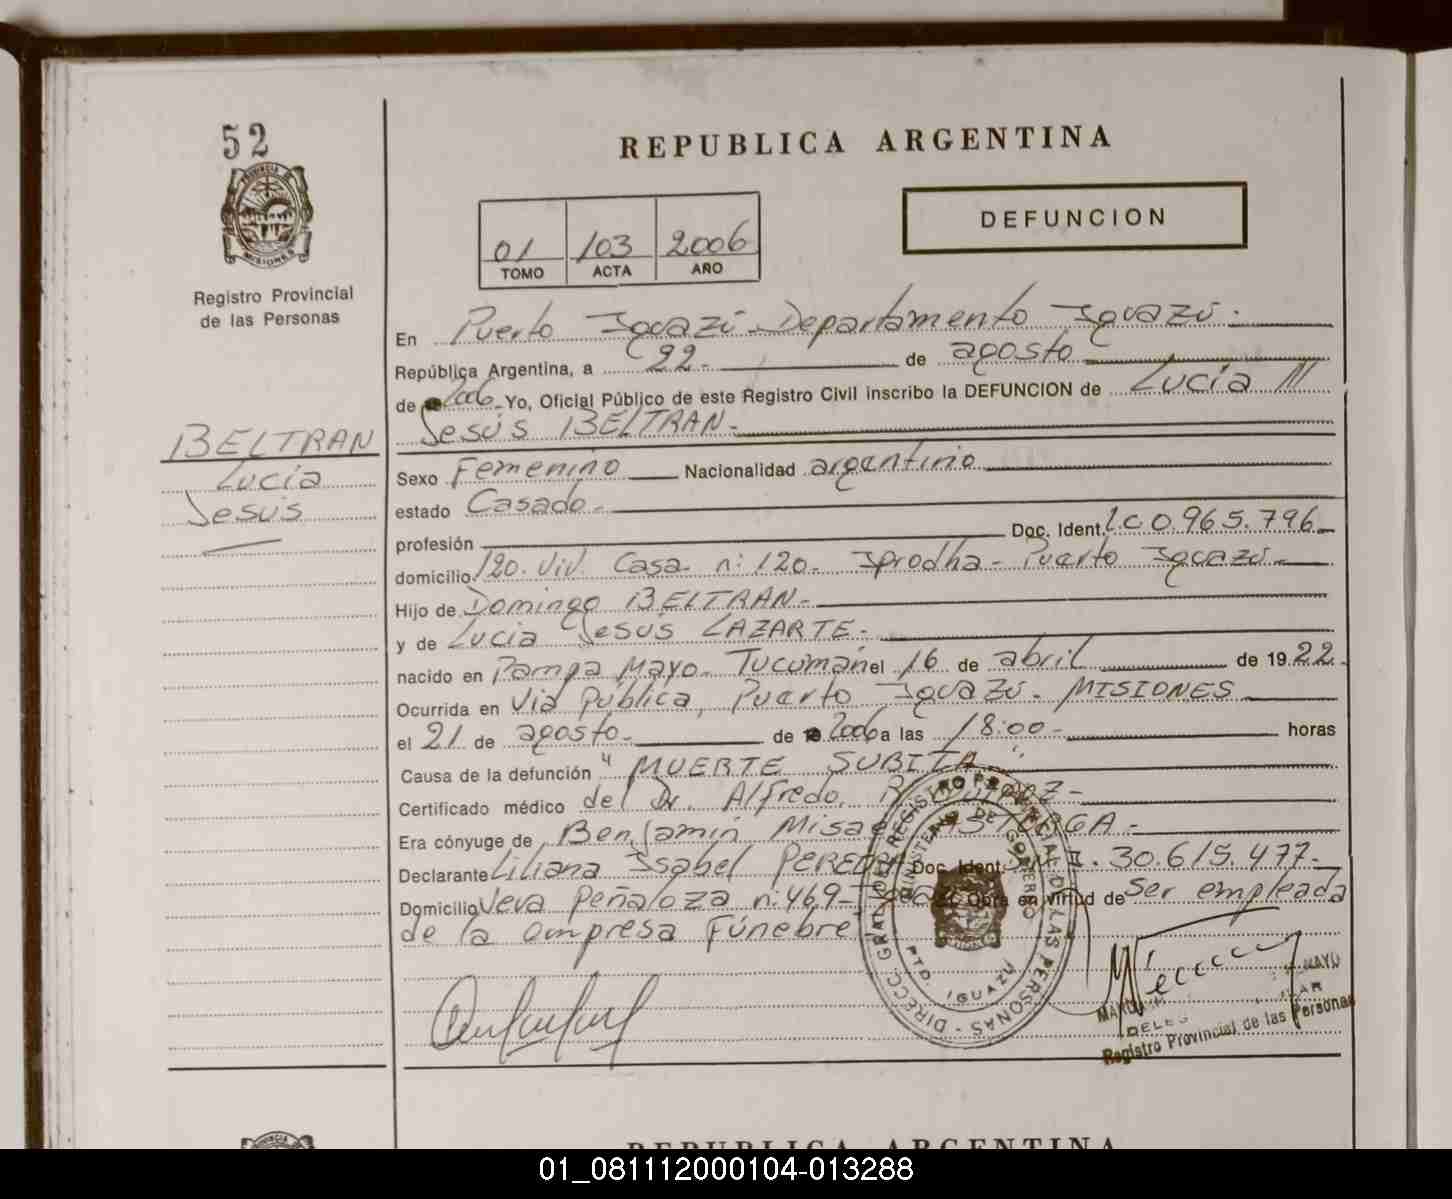 52
PROVINCIA DE
MISIONES
Registro Provincial
de las Personas
BELTRAN
Lucía
Jesús
REPUBLICA ARGENTINA
01 103 2006
TOMO ACTA AÑO
DEFUNCION
En Puerto Iguazú - Departamento Iguazú.
República Argentina, a 22- de agosto
de 2006 - Yo, Oficial Público de este Registro Civil inscribo la DEFUNCION de Lucía
Jesús BELTRAN-
Sexo Femenino Nacionalidad argentino
estado Casado-
profesión Doc. Ident. L.C 0.965.796-
domicilio 120. Viv. Casa- n: 120- Iprodha - Puerto Iguazú-
Hijo de Domingo BELTRAN-
y de Lucia Jesús LAZARTE-
nacido en Pampa Mayo- Tucumán el 16 de abril de 1922-
Ocurrida en Vía Pública, Puerto Iguazú- MISIONES
el 21 de agosto- de 2006 a las 18:00- horas
Causa de la defunción "MUERTE SUBITA".
Certificado médico del Dr. Alfredo
Era cónyuge de Benjamín Misael
Declarante Liliana Isabel PEREIRA Doc. Ident. 30.615.477-
Domicilio Peñaloza n: 469- Obra en virtud de ser empleada
de la empresa Fúnebre
DIRECC. GRAL. DEL REGISTRO PROVINCIAL DE LAS PERSONAS
MINISTERIO DE GOBIERNO
PTO. IGUAZU
Registro Provincial de las Personas
REPUBLICA ARGENTINA
01_081112000104-013288